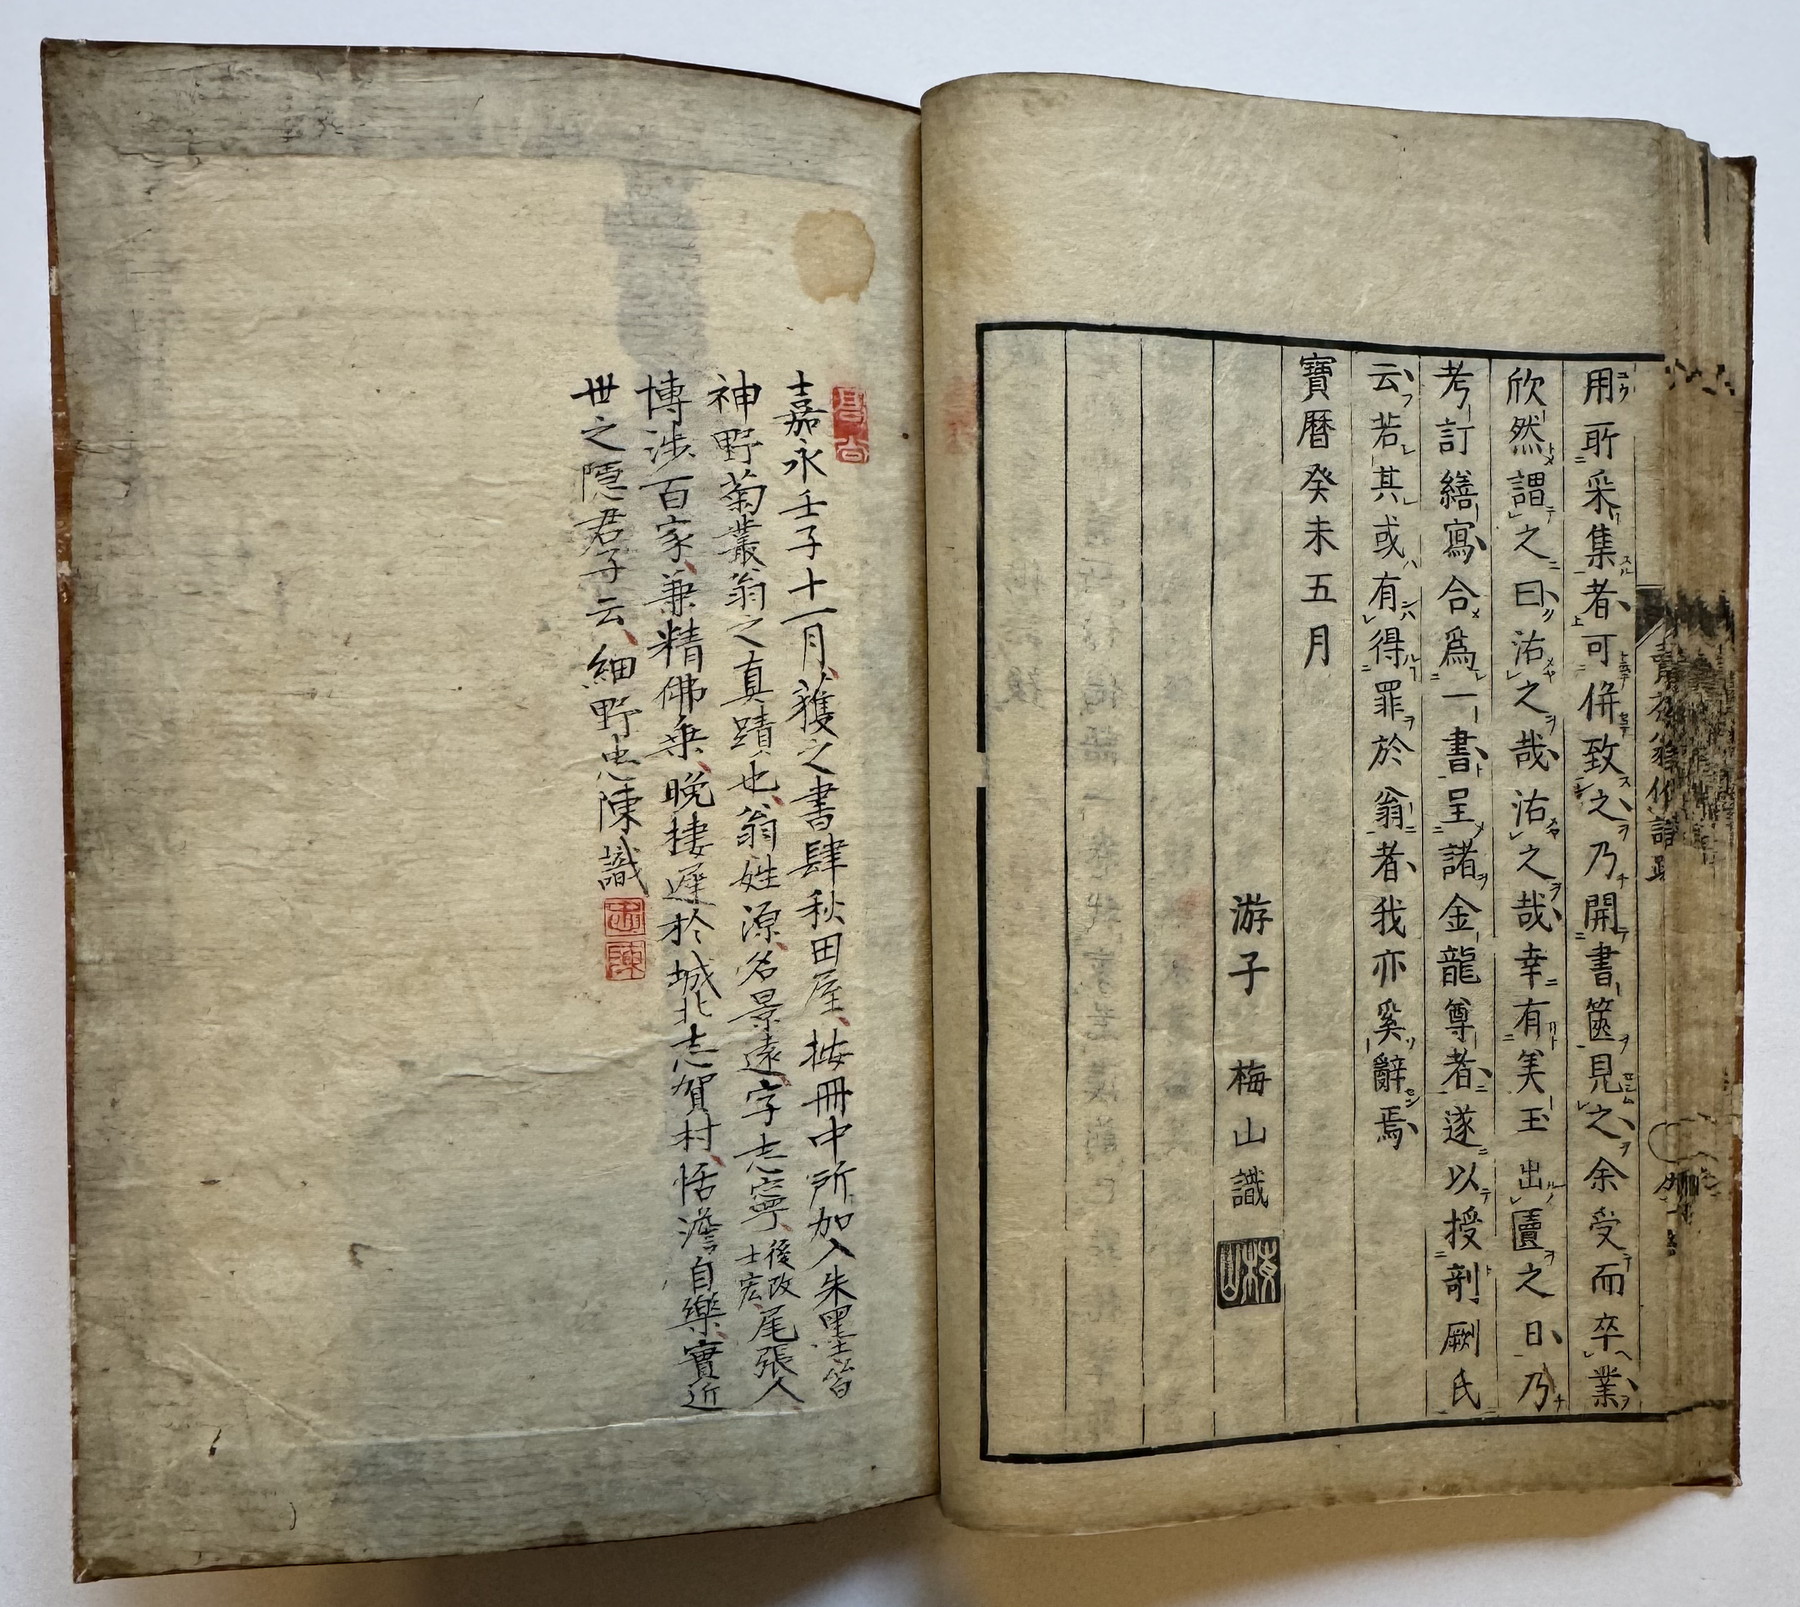 用所采集者可併致之乃開書篋見之余受而卒業
欣然謂之曰沽之哉沽之哉幸有美玉出匵之日乃
考訂繕寫合爲一書呈諸金龍尊者遂以授剞劂氏
云若其或有得罪於翁者我亦奚辭焉
寶曆癸未五月
游子 梅山識
嘉永壬子十一月獲之書肆秋田屋按冊中所加入朱墨笞
神野菊叢翁之真蹟也翁姓源名景遠字志寧後改士宏尾張人
博渉百家兼精佛乗晩棲遲於城北志賀村恬澹自樂實近
世之隱君子云細野忠陳識
忠陳